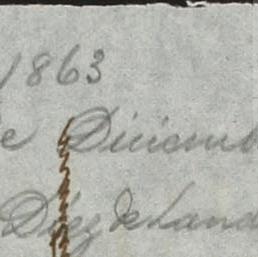 1863
e Diciemb
Diez de Land